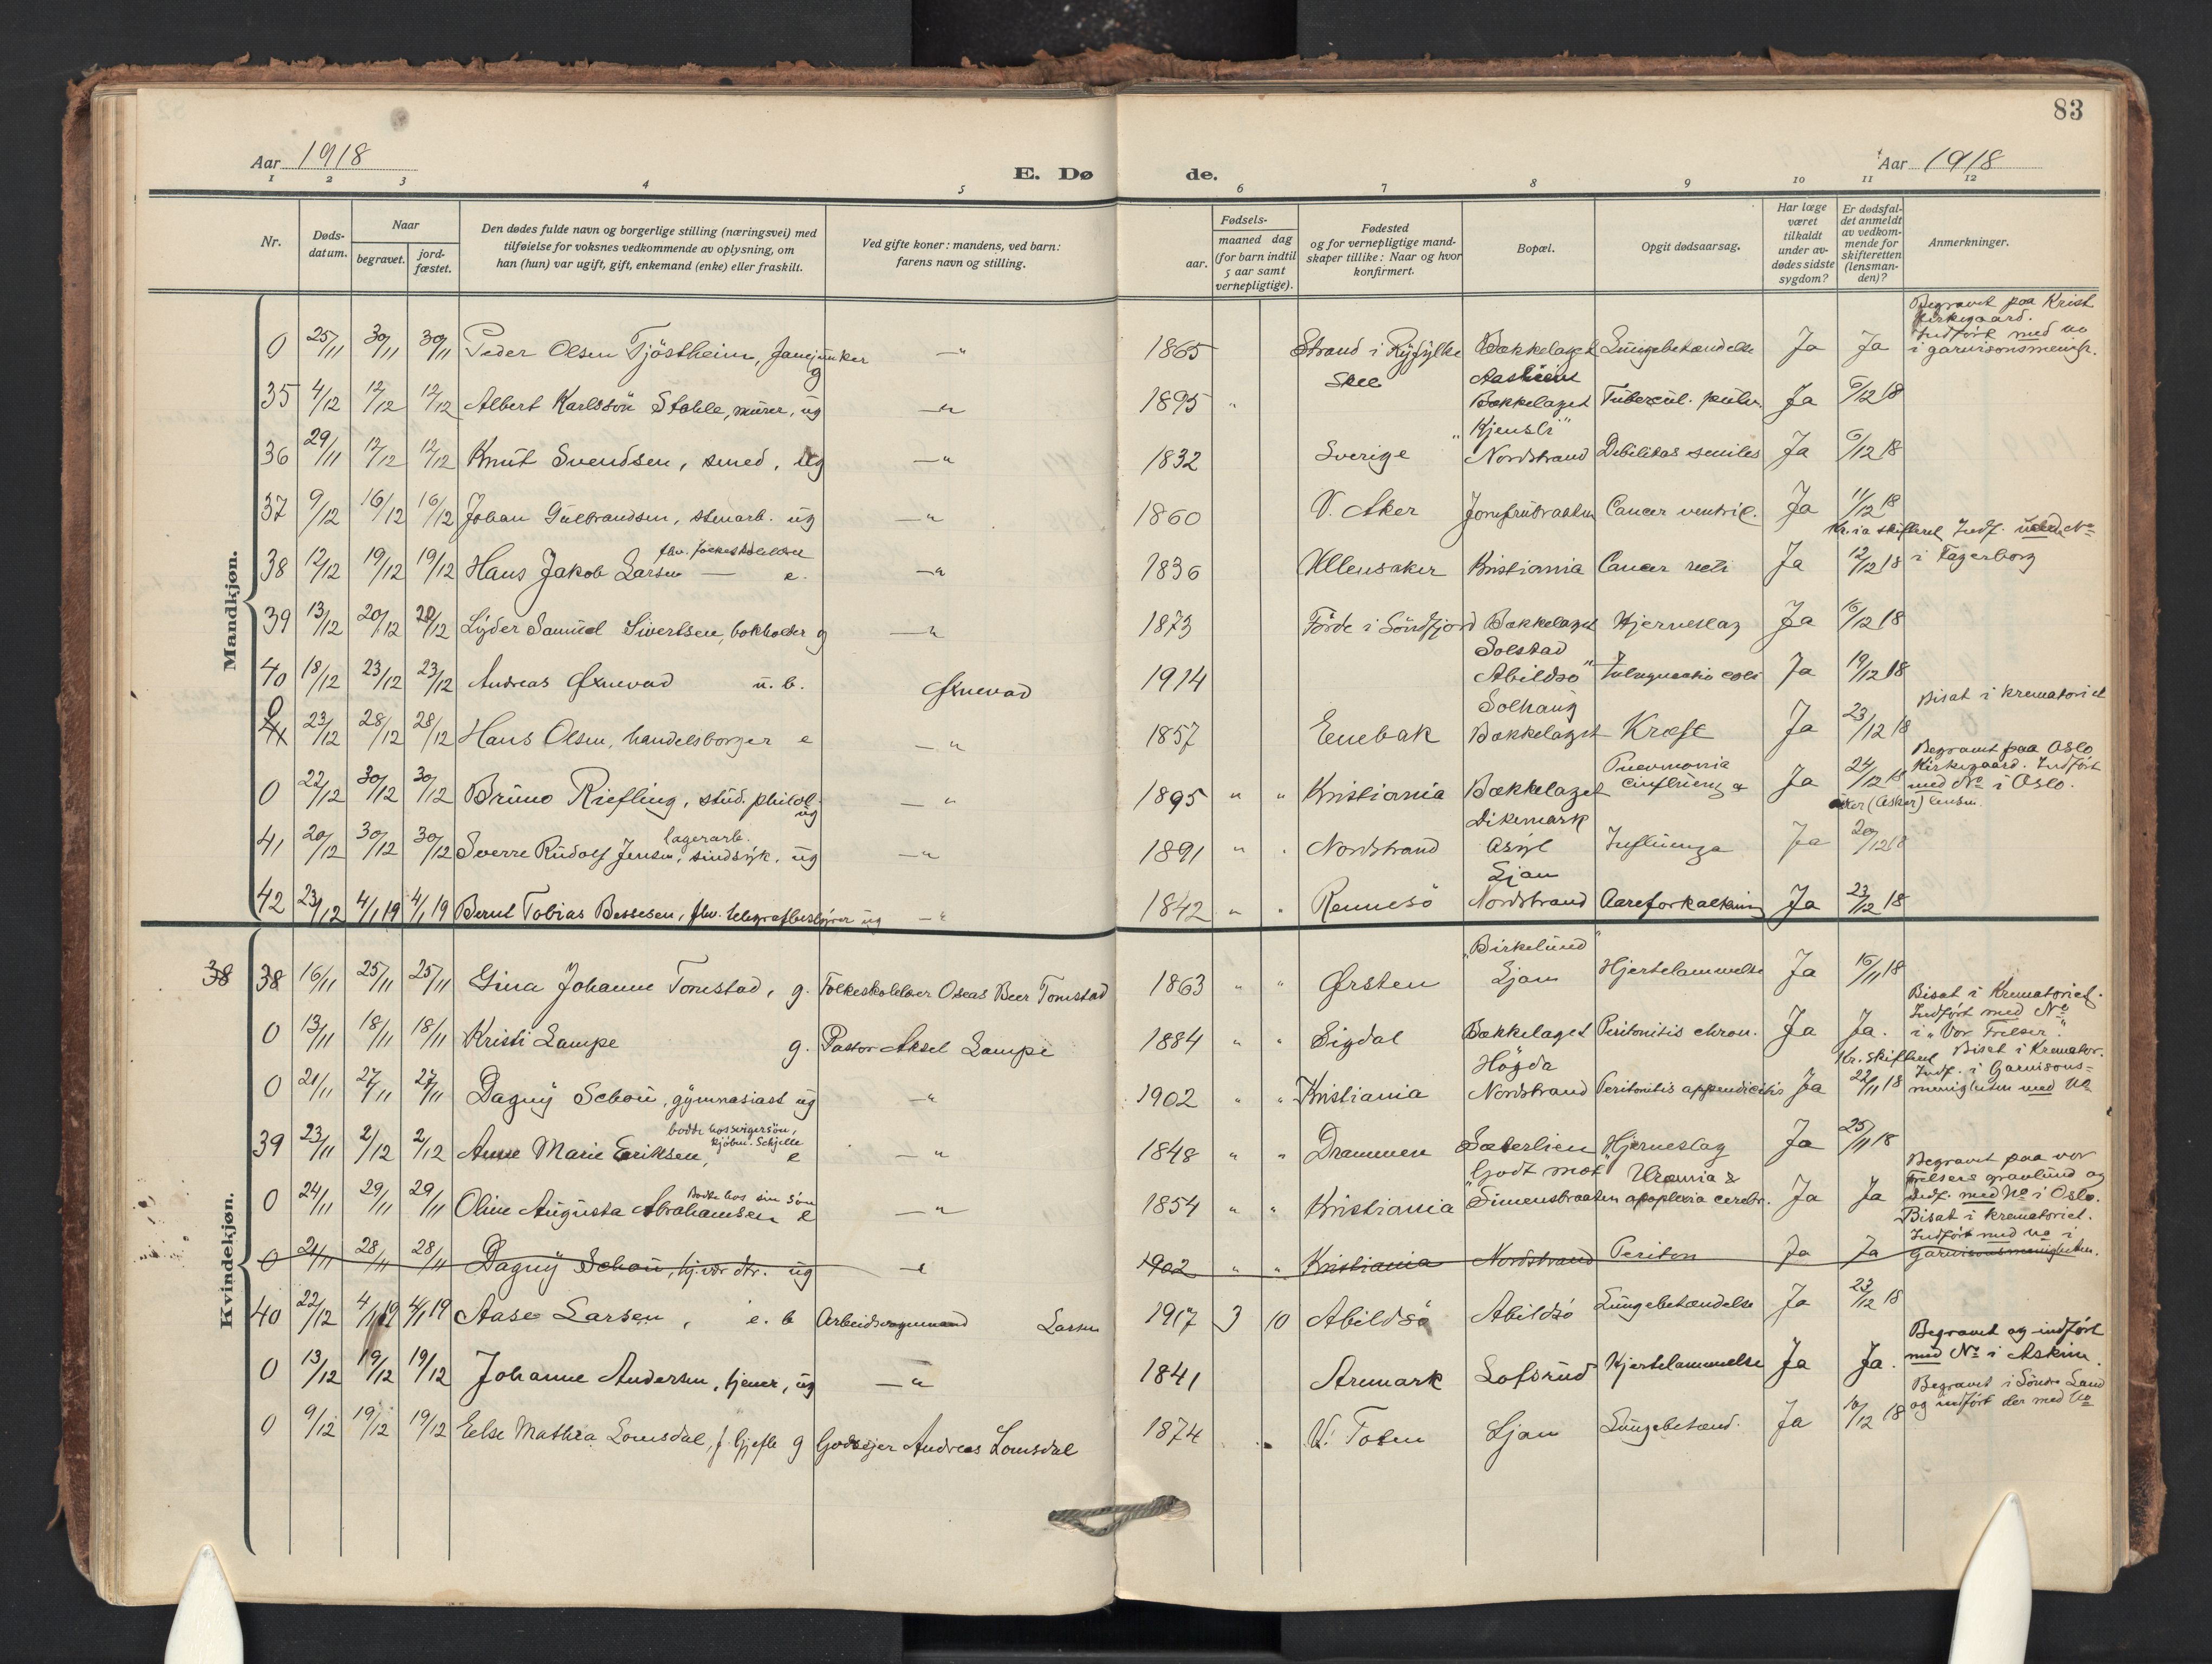 83
Aar 1918
E. Dø
de.
Aar 1918
1 2 3 4 5 6 7 8 9 10 11 12
Nr.
Døds-datum.
Naar
begravet.
jord-fæstet.
Den dødes fulde navn og borgerlige stilling (næringsvei) med
tilføielse for voksnes vedkommende av oplysning, om
han (hun) var ugift, gift, enkemand (enke) eller fraskilt.
Ved gifte koner: mandens, ved barn:
farens navn og stilling.
Fødsels-
aar.
maaned dag
(for barn indtil
5 aar samt
vernepligtige).
Fødested
og for vernepligtige mand-
skaper tillike: Naar og hvor
konfirmert.
Bopæl.
Opgit dødsaarsag.
Har læge
været
tilkaldt
under av-
dødes sidste
sygdom?
Er dødsfal-
det anmeldt
av vedkom-
mende for
skifteretten
(lensman-
den)?
Anmerkninger.
Mandkjøn.
0 25/11 30/11 30/11 Peder Olsen Tjöstheim, g —" 1865 Strand i Ryfylke Bækkelaget Lungebetændelse Ja Ja Begravet paa Krist Kirkegaard. Indført med No i garnisonsmenigh.
35 4/12 12/12 12/12 Albert Karlsson Stahle, murer, ug —" 1895 " Skee Bækkelaget Tubercul. pulm. Ja 6/12 18
36 29/11 12/12 12/12 Knut Svendsen, smed, ug —" 1832 Sverige "Kjensli" Nordstrand Debilitas senilis Ja 6/12 18
37 9/12 16/12 16/12 Johan Gulbrandsen, stenarb. ug —" 1860 V. Aker Jomfrubraaten Cancer ventric. Ja 11/12 18
38 12/12 19/12 19/12 Hans Jakob Larsen — fhv. folkeskolelærer e. —" 1836 Ullensaker Kristiania Cancer recti Ja 12/12 18 Kr.ia skifteret Indf. uden No i Fagerborg
39 13/12 20/12 20/12 Lyder Samuel Sivertsen, bokholder g —" 1873 Förde i Söndfjord Bækkelaget Hjerneslag Ja 16/12 18
40 18/12 23/12 23/12 Andreas Øxnevad u. b. Øxnevad 1914 Solstad Abildsö Ja 19/12 18
0 23/12 28/12 28/12 Hans Olsen, handelsborger e —" 1857 Enebak Solhaug Bækkelaget Kræft Ja 23/12 18 Bisat i krematoriet
0 22/12 30/12 30/12 Bruno Riefling, stud. philol. ug —" 1895 " " Kristiania Bækkelaget Pneumonia Ja 24/12 18 Begravet paa Oslo Kirkegaard. Indført med No i Oslo.
41 20/12 30/12 30/12 Sverre Rudolf Jensen, lagerarb. sindsyk. ug —" 1891 " . Nordstrand Dikemark Asyl Influenza Ja 20/12 18 Aker (Asker) lensm.
42 23/12 4/1 19 4/1 19 Bernt Tobias Bessesen, fhv. telegrafbestyrer ug —" 1842 " . Rennesö Ljan Nordstrand Aareforkalkning Ja 23/12 18
Kvindekjøn.
38 38 16/11 25/11 25/11 Gina Johanne Tomstad, g. Folkeskolelærer Oseas Beer Tomstad 1863 " " Ørsten "Birkelund" Ljan Hjertelammelse Ja 16/11 18
0 13/11 18/11 18/11 Kristi Lampe g. Pastor Aksel Lampe 1884 " " Sigdal Bækkelaget Peritonitis chron. Ja Ja. Bisat i Krematoriet. Indført med No i "Vor Frelser".
0 21/11 27/11 27/11 Dagny Schou, gymnasiast ug —" 1902 " " Kristiania Högda Nordstrand Peritonitis appendicitis Ja Kr. skifteret 22/11 18 Bisat i Kremator. Indf. i Garnisons-menigheten med No
39 23/11 2/12 2/12 Anne Marie Eriksen, bodde hos svigersøn, kjøbm. Schjelle e —" 1848 " " Drammen Sæterlien Hjerneslag Ja 25/11 18
0 24/11 29/11 29/11 Oline Augusta Abrahamsen Bodde hos sin søn e —" 1854 " " Kristiania "Godt mot" Simensbraaten Uræmia & apoplexia cerebr. Ja Ja Begravet paa vor Frelsers gravlund og Indf. med No i Oslo.
0 21/11 28/11 28/11 Dagny Schou, hj.vær. dtr. ug —" 1902 " " Kristiania Nordstrand Periton Ja Ja Bisat i krematoriet. Indført med No i Garnisonsmenigheten.
40 22/12 4/1 19 4/1 19 Aase Larsen, e. b Larsen 1917 3 10 Abildsö Abildsö Lungebetændelse Ja 23/12 18
0 13/12 19/12 19/12 Johanne Andersen, tjener, ug —" 1841 Aremark Lofsrud Hjertelammelse Ja Ja. Begravet og indført med No i Askim.
0 9/12 19/12 19/12 Else Mathea Lomsdal, f. Gjefle g Godseier Andreas Lomsdal 1874 V. Toten Ljan Lungebetænd. Ja 10/12 18 Begravet i Söndre Land og indført der med No